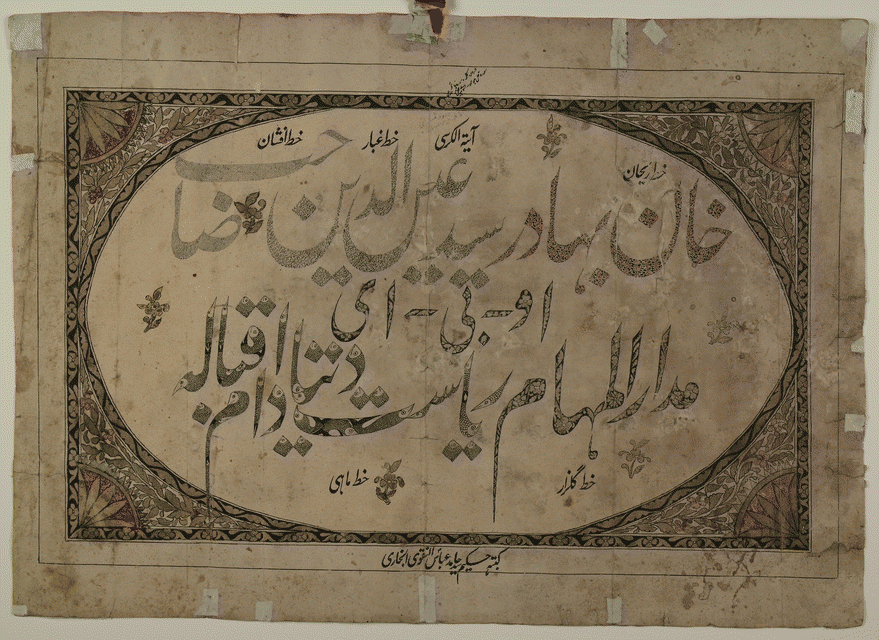 آیة الکرسی
خط غبار
خط افشان
خط ریحان
خان بہادر سید عین الدین صاحب
او - بی - ای
مدار المہام ریاست دتیا دام اقبالہ
خط گلزار
خط ماہی
کتبہ حکیم حامد عباس النقوی البخاری